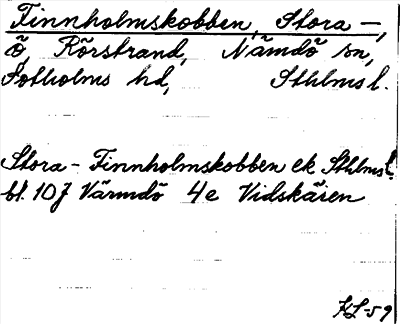 Finnholmskobben, Stora –,
ö, Rörstrand, Nämdö sn,
Sotholms hd, Sthlms l.
Stora - Finnholmskobben ek Sthlms l.
bl. 107 Värmdö 4e Vidskären
KL-59